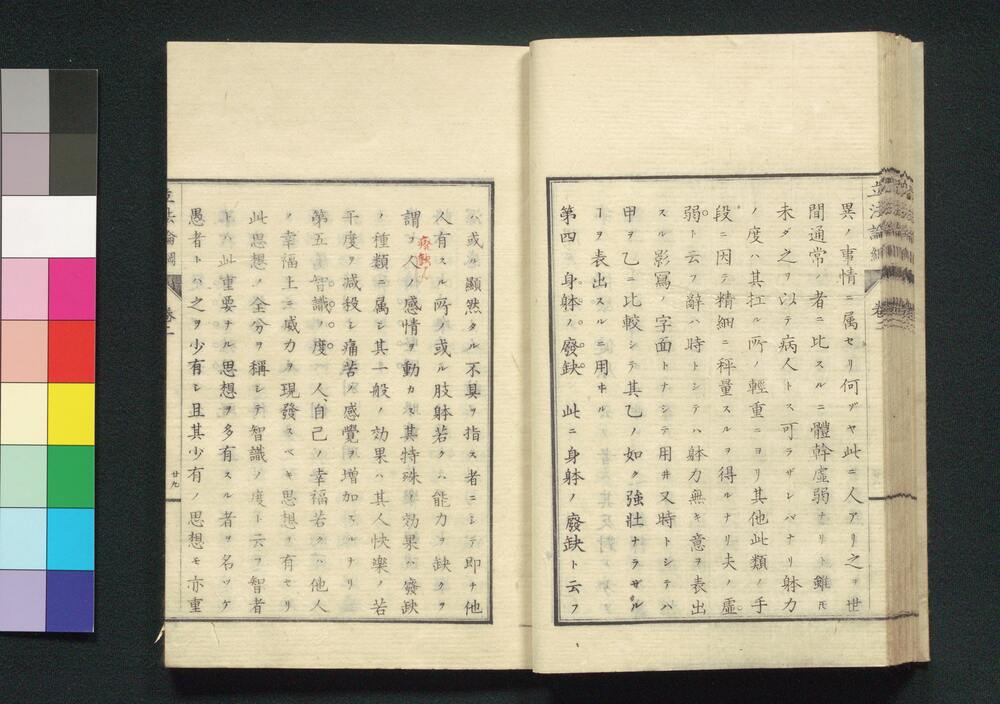 異ノ事情ニ属セリ何ゾヤ此ニ人アリ之ヲ世
間通常ノ者ニ比スルニ體幹虚弱ナリト雖モ
未ダ之ヲ以テ病人トス可ラザレバナリ躰力
ノ度ハ其扛ル所ノ輕重ニヨリ其他此類ノ手
段ニ因テ精細ニ秤量スルヲ得ルナリ夫ノ虚
弱ト云フ辭ハ時トシテハ躰力無キ意ヲ表出
スル影寫ノ字面トナシテ用井又時トシテハ
甲ヲ乙ニ比較シテ其乙ノ如ク強壯ナラザル
ヿヲ表出スルニ用ヰル
第四 身躰ノ廢缺 此ニ身躰ノ廢缺ト云フ
ハ或ル顯然タル不具ヲ指ス者ニシテ即チ他
人有スル所ノ或ル肢躰若クハ能力ヲ缺クヲ
謂フ人ノ感情ヲ動カス其特殊ノ効果ハ廢缺
ノ種類ニ属シ其一般ノ効果ハ其人快樂ノ若
干度ヲ減殺シ痛苦ノ感覺ヲ增加スルナリ
第五 智識ノ度 人自己ノ幸福若クハ他人
ノ幸福上ニ威力ヲ現發スベキ思想ヲ有セリ
此思想ノ全分ヲ稱シテ智識ノ度ト云フ智者
トハ此重要ナル思想ヲ多有スル者ヲ名ツケ
愚者トハ之ヲ少有シ且其少有ノ思想モ亦重
立法論綱 卷二
廿九